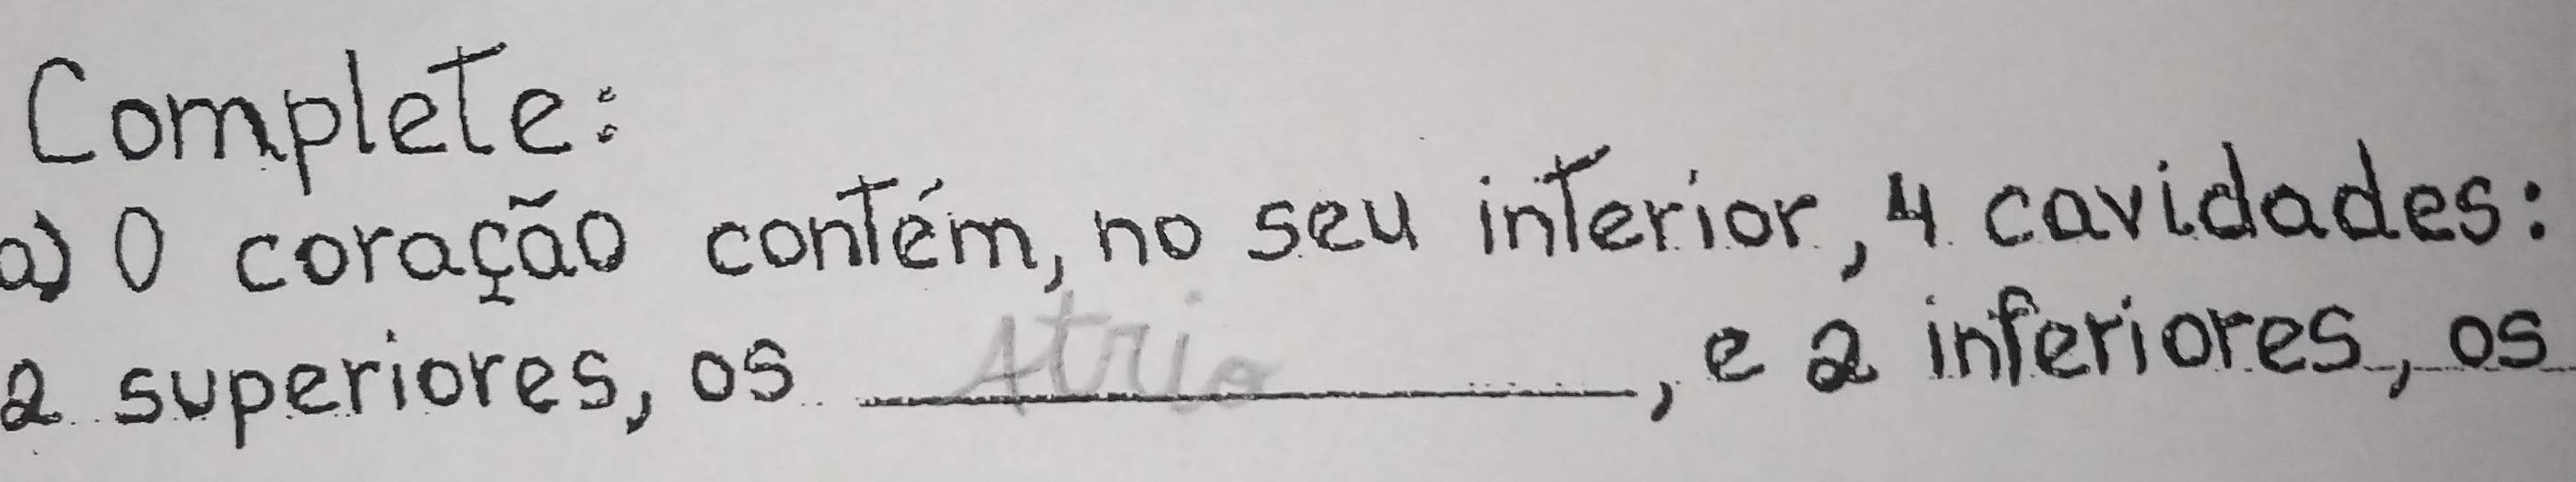 Complete:
a) O coração contém, no seu interior, 4 cavidades:
2 superiores, os Atrio, e 2 inferiores, os